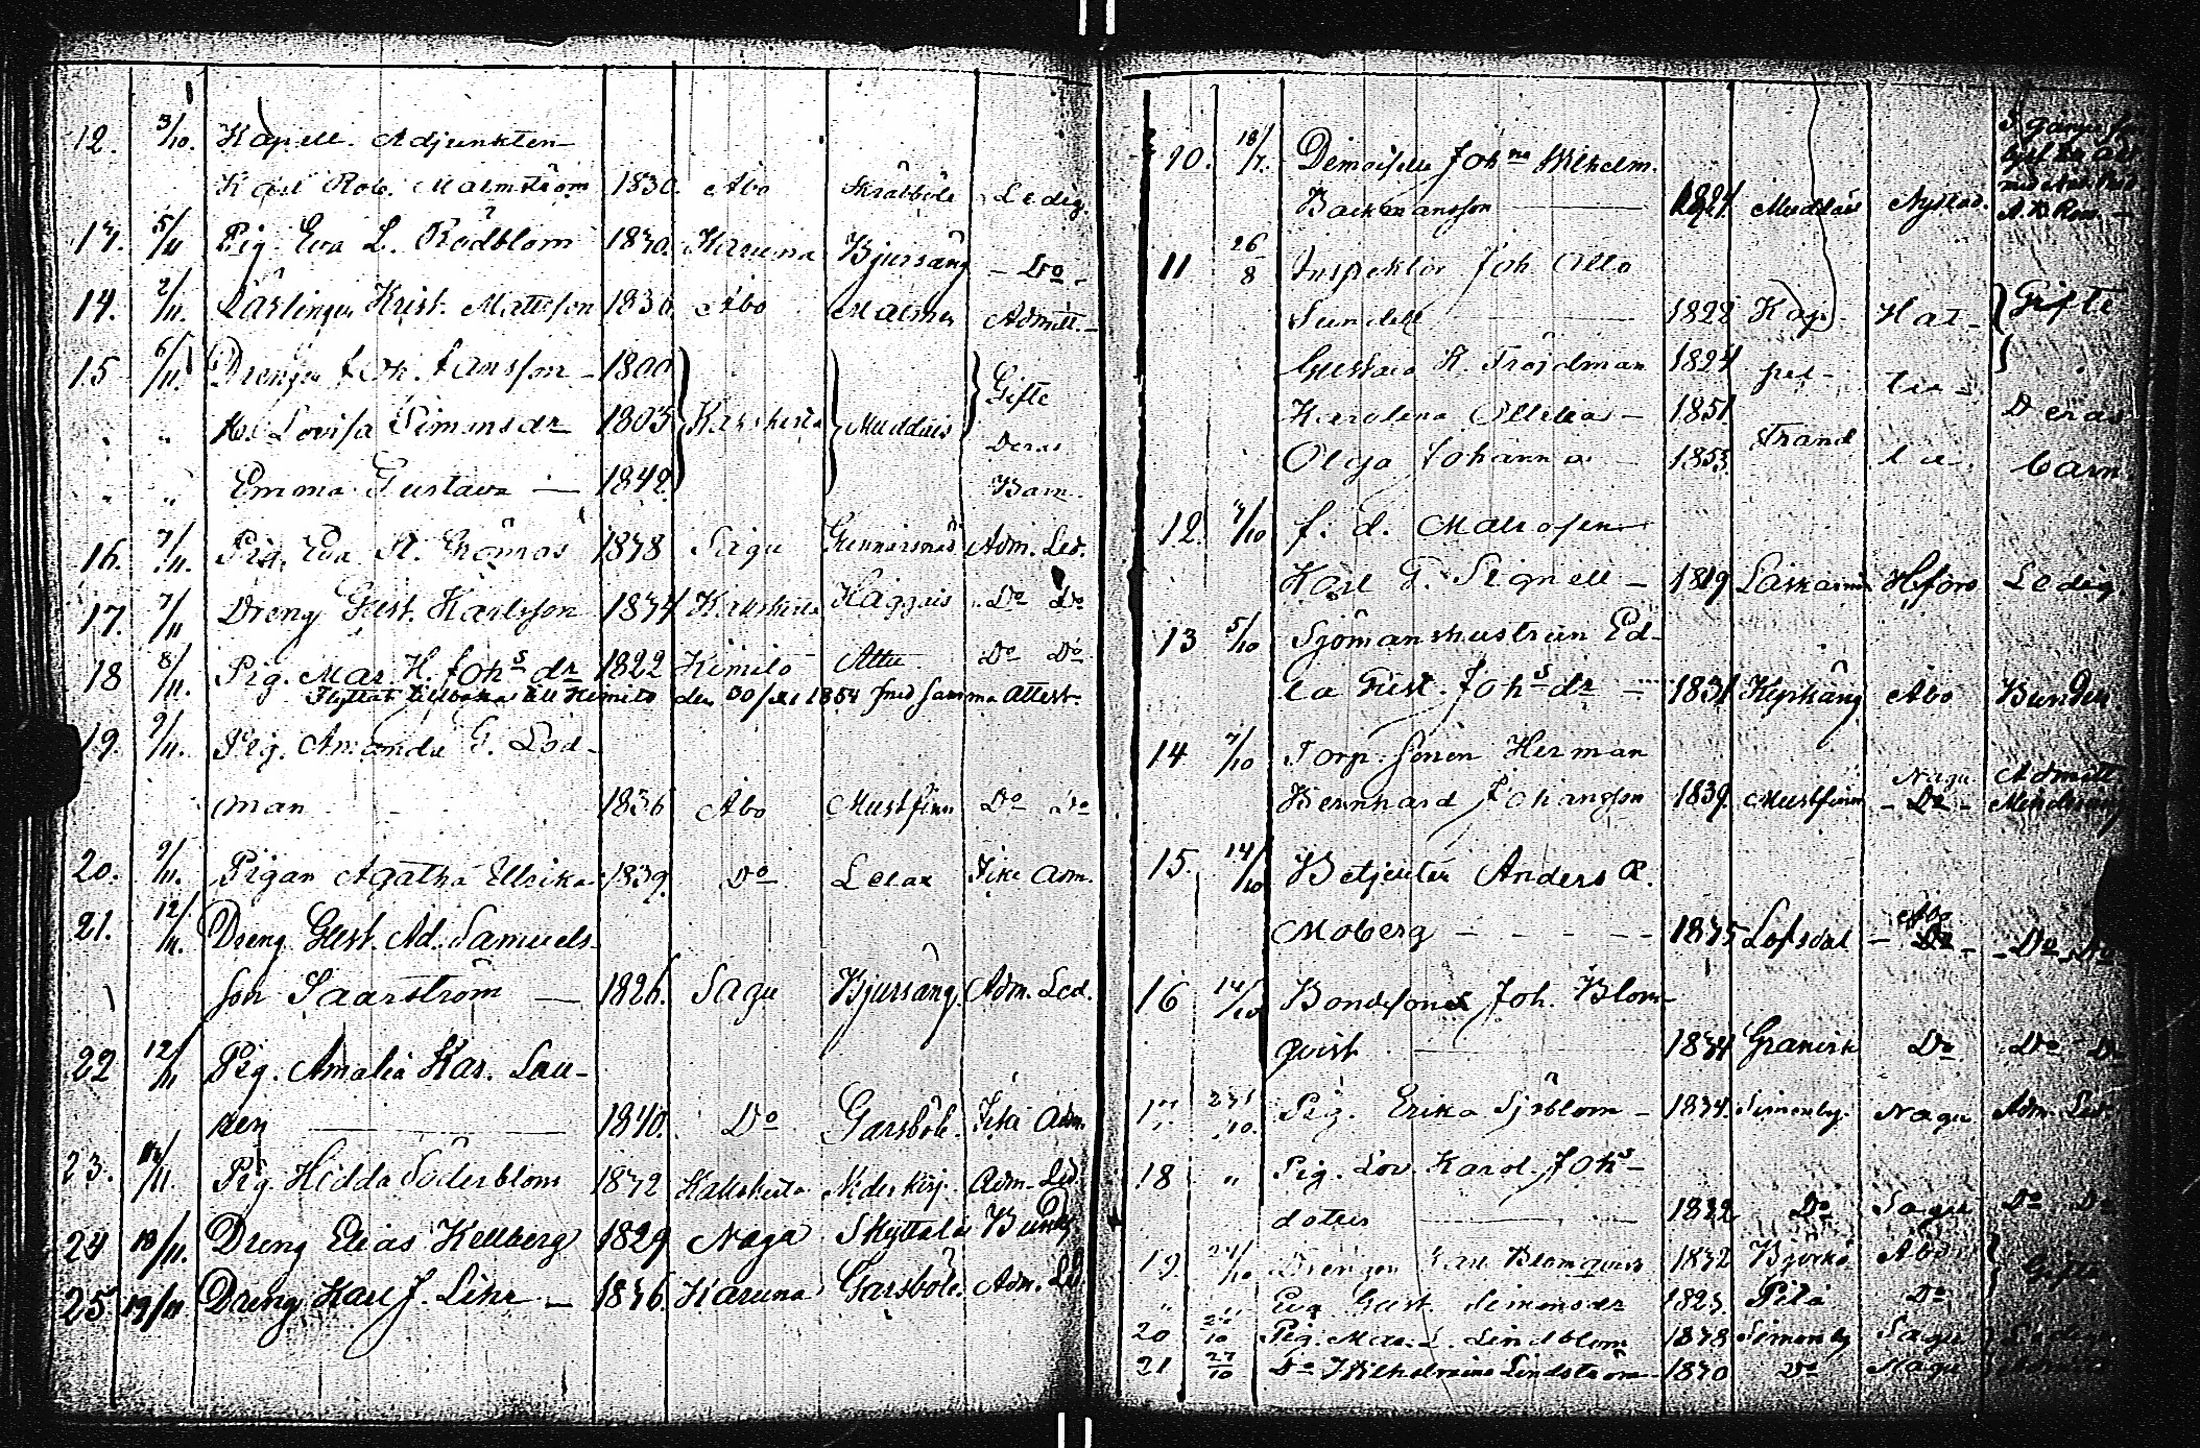 12. 3/10. Kapell. Adjunkten
Karl Rob. Malmström 1830. Åbo Skräbböle Ledig.
13. 5/11 Pig. Eva L. Rödblom 1830. Karuna Bjursäng - Do -
14. 2/11. Lärlingen Krist. Mattsson 1836 Åbo Malmen Admitt.
15 6/11. Drengen Joh. Jansson - 1800 Gifte
" " H. Lovisa Simonsdr 1803 Kakskerta Muddais Deras
" " Emma Gustava — 1842. Barn.
16. 7/11. Pig. Eva St. Grönros 1838 Sagu Gunnarsnäs Adm. Led.
17. 7/11 Dreng Gust. Karlsson 1834 Kakskerta Haggais Do Do
18 8/11. Pig. Mar. H. Johs dr 1822 Kimito Attu Do Do
Flyttat tillbaka till Kimito den 1854 med samma attest.
19. 9/11. Pig. Amanda G. Löd-
man 1836 Åbo Mustfinn Do Do
20. 9/11. Pigan Agatha Ulrika 1839. Do Lelax Icke Adm.
21. 12/11. Dreng Gust. Ad. Samuels-
son Saarström — 1826. Sagu Bjursäng. Adm. Led.
22 12/11 Pig. Amalia Kar. Lau-
ren — 1840. Do Garsböle. Icke Adm.
23. /11. Pig. Hedda Söderblom 1832 Kakskerta Nederkirj. Adm. Led.
24 18/11. Dreng Elias Kellberg 1829 Nagu Skyttala
25 19/11 Dreng Karl J. Lihr — 1836. Karuna Garsböle. Adm. Led.
10. 18/7. Demoiselle Johna Wilhelm.
Backmansson — Muddais Nystad.
11 26/8 Inspektor Joh Otto
Sundell — 1828 Kop- Hat- Gifte
Gustava K. Fröjdman 1824 par- tu-
Karolina Otilia - 1851 Deras
Olga Johanna - 1853. strand la. barn.
12. 7/10 f. d. Matrosen
Karl G. Signell - 1819 Hfors Ledig
13 5/10 Sjömanshustrun Ed-
la Gust. Johs dr - 1831 Kyrkäng Åbo Bunden
14 7/10 Torp. sonen Herman Nagu Admitt
Bernhard Johansson 1839. Mustfinn - Do -
15. 14/10 Betjenten Anders A.
Moberg - - - - 1835 Lofsdal Åbo - Do - - Do
16 14/10 Bondeson Joh. Blom-
qvist — 1834 Granvik Do Do Do
17. /10. Pig. Erika Sjöblom - 1834. Simonby. Nagu Adm. Led
18 " Pig. Lov. Karol. Johs-
dotter — 1832 Do Sagu Do Do
19 24/10 Drengen Karl Blomqvist 1832 Björkö Åbo Gifte
" Eva Gust. Simonsdr 1823. Do
20 /10 Pig. Mar. L. Lindblom 1838 Simonby Sagu
21 27/10 Do Wilhelmina Lindström 1830 Do Nagu